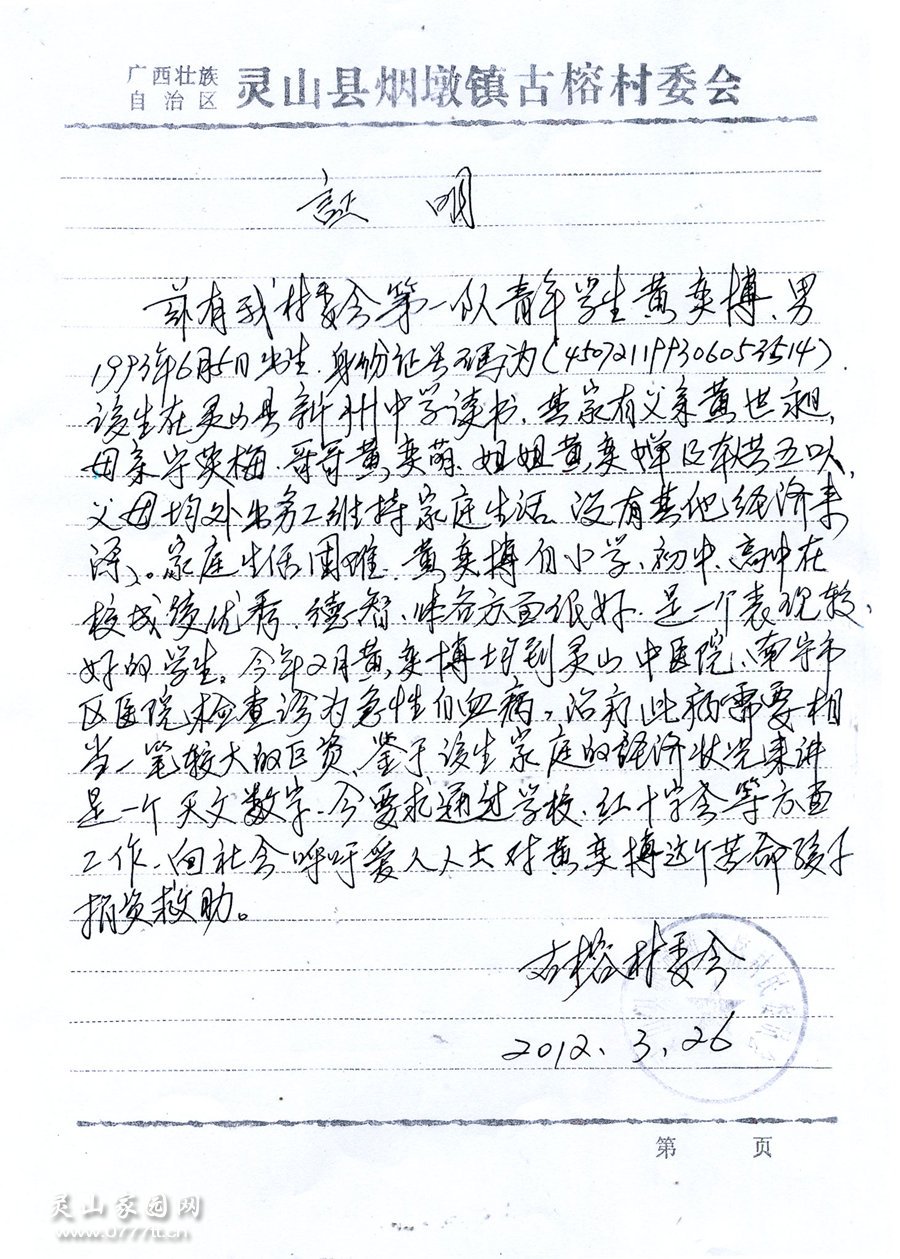 广西壮族
自治区 灵山县烟墩镇古榕村委会
証 明
兹有我村委会第一队青年学生黄奕搏、男
1993年6月5日出生.身份证号码为(450721199306053514).
该生在灵山县新洲中学读书.其家有父亲黄世昶,
母亲宁英梅.哥哥黄奕萌.姐姐黄奕婵及本人共五口人,
父母均外出务工维持家庭生活.没有其他经济来
源。家庭生活困难.黄奕搏自小学、初中、高中在
校成绩优秀.德、智、体各方面很好.是一个表现较
好的学生。今年2月黄奕搏 到灵山中医院、南宁市
区医院检查诊为急性白血病,治疗此病需要相
当一笔较大的巨资、鉴于该生家庭的经济状况来讲
是一个天文数字.今要求通过学校、红十字会等方面
工作、向社会呼吁爱人人士对黄奕搏这个苦命孩子
捐资救助。
古榕村委会
2012、3、26
第 页
灵山家园网
www.0777lt.cn